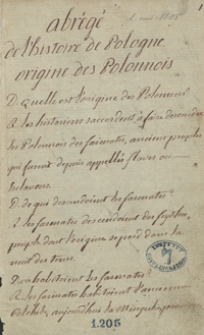 abrégé
de l'histoire de Pologne
origine des Polonnois
D. quelle est l'origine des Polonnois?
R. les historiens s'accordent a faire descendre
les Polonnois des sarmates, anciens peuples
qui furent depuis appellés slaves ou
Sclavons.
D. de qui descendoient les sarmates?
R. les sarmates descendoient des scythes,
peuple dont l'origine se perd dans la
nuit des tems.
D. ou habitoient les sarmates?
R. les sarmates habitoient
aujourdhui la
1205